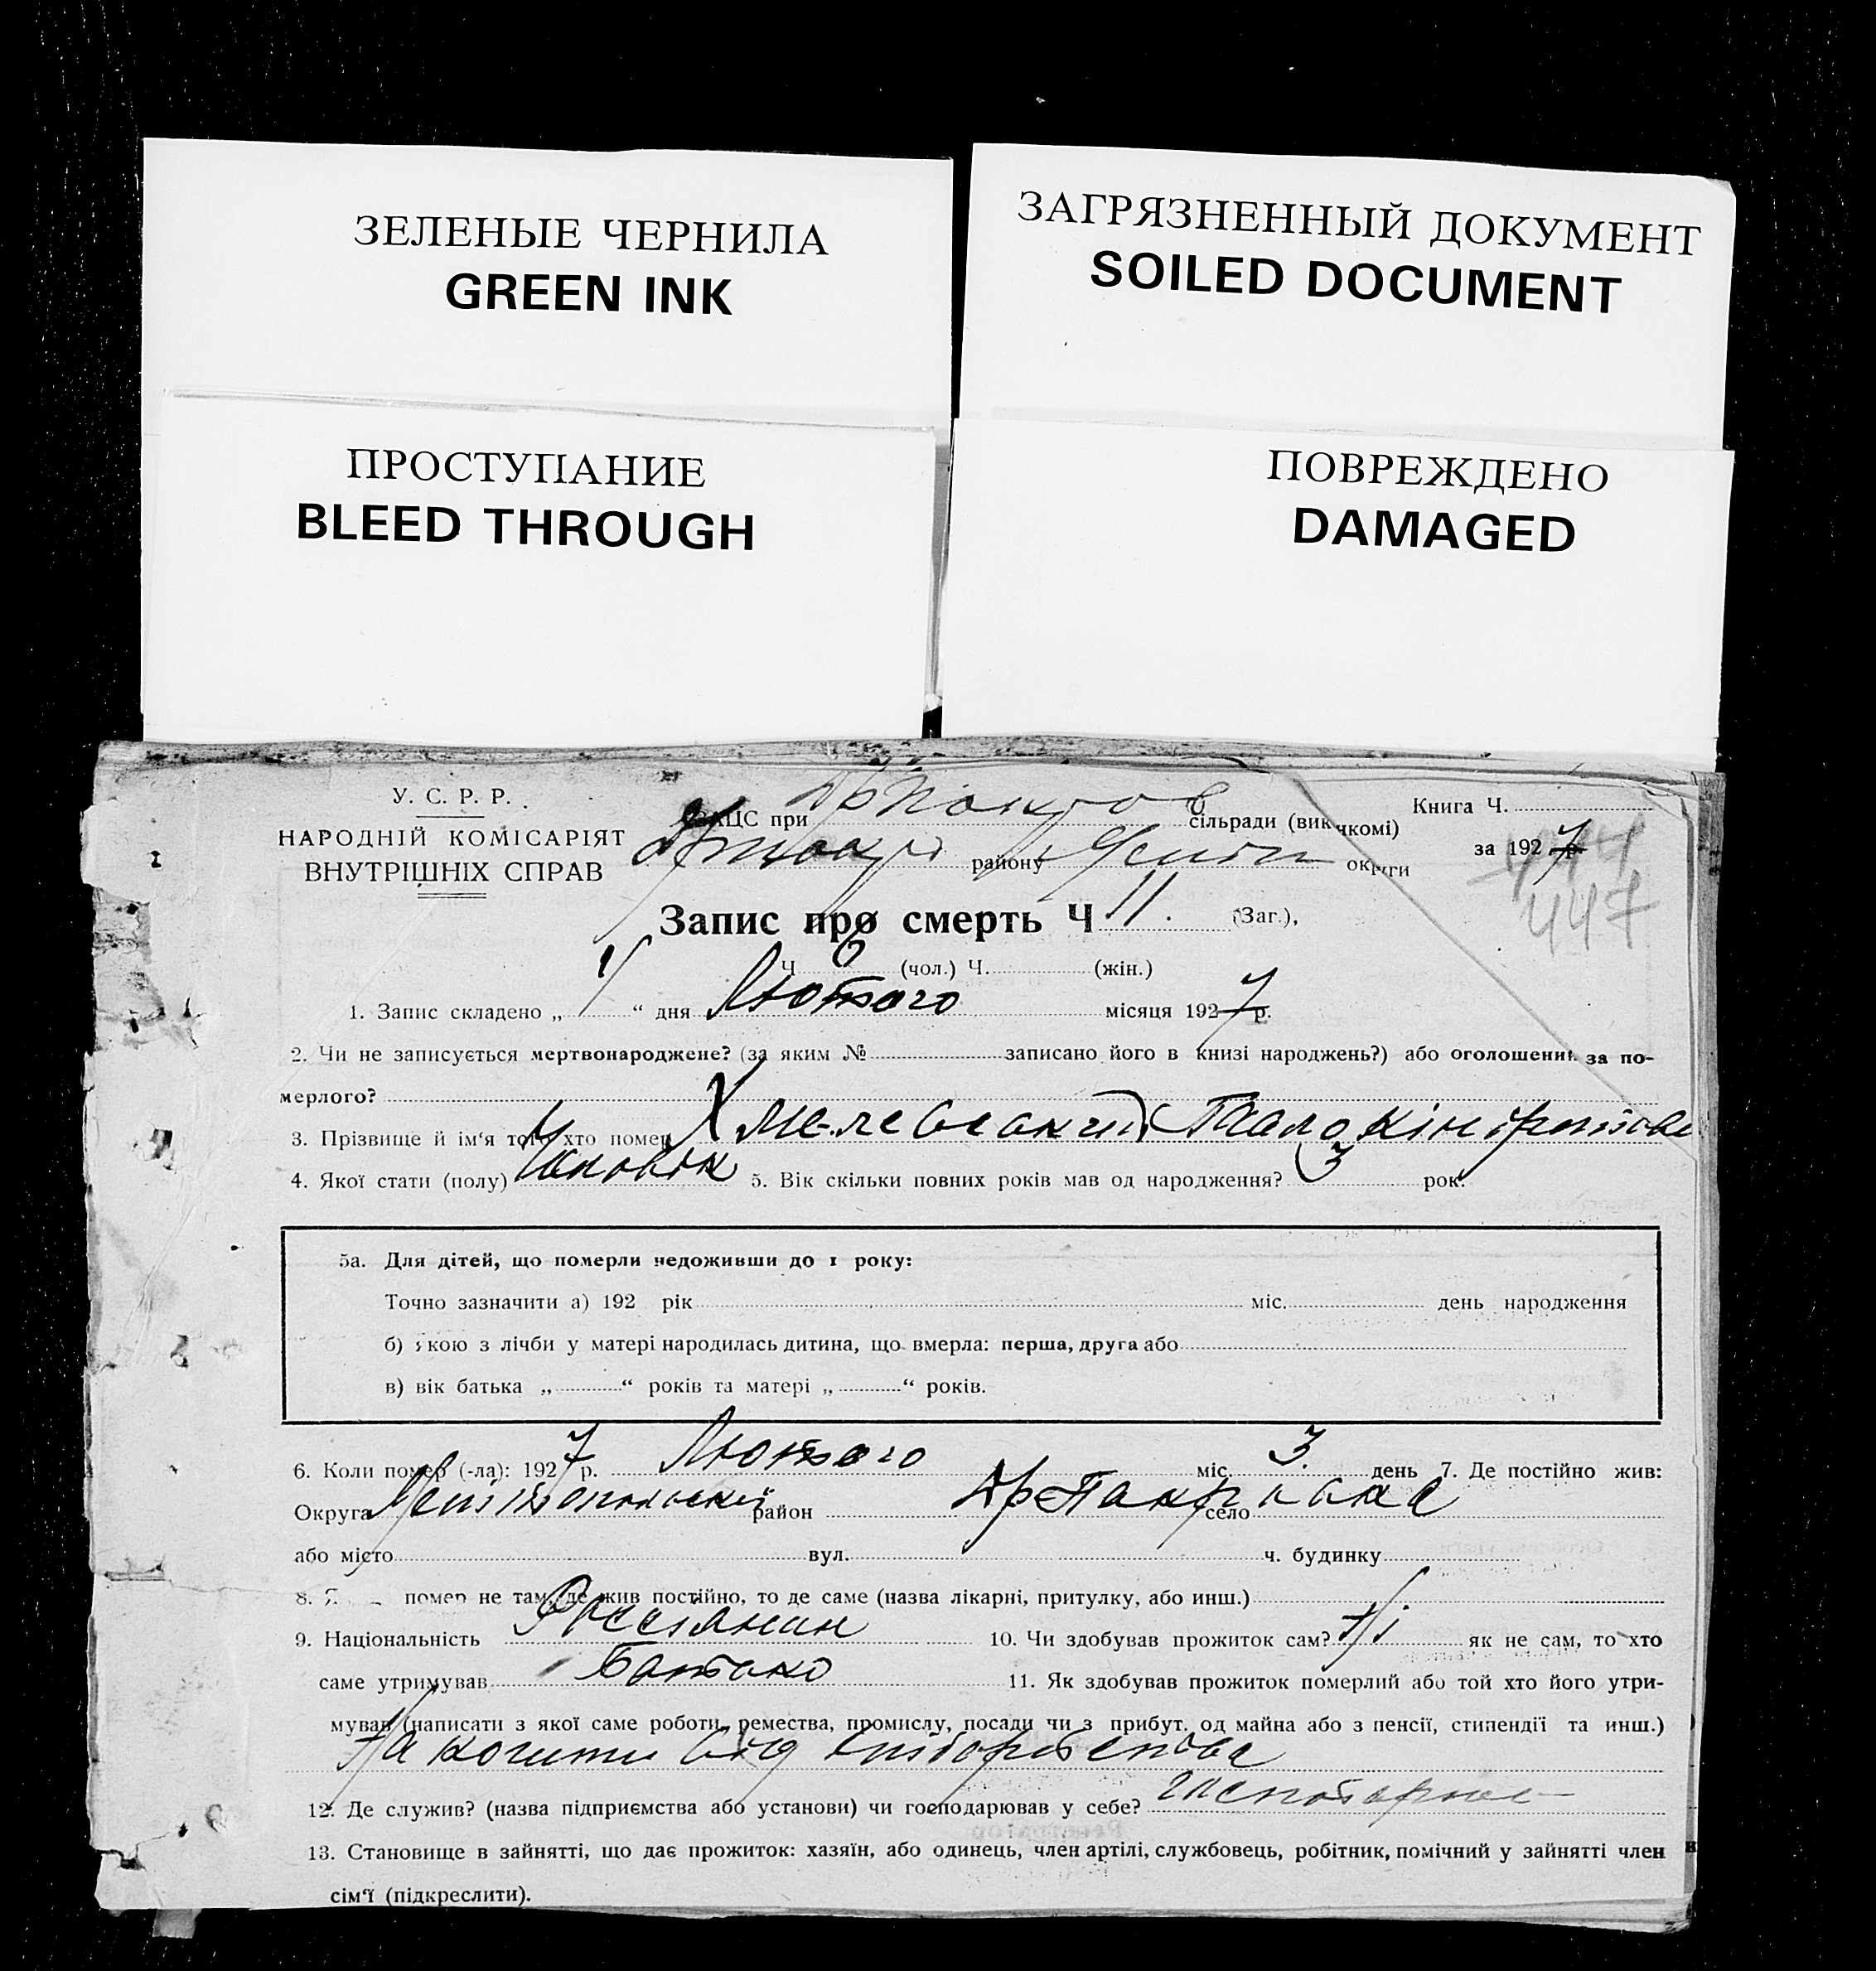 ЗЕЛЕНЫЕ ЧЕРНИЛА
GREEN INK
ЗАГРЯЗНЕННЫЙ ДОКУМЕНТ
SOILED DOCUMENT
ПРОСТУПАНИЕ
BLEED THROUGH
ПОВРЕЖДЕНО
DAMAGED
У. С. Р. Р.
НАРОДНІЙ КОМІСАРІЯТ
ВНУТРІШНІХ СПРАВ
ЗАЦС при сільради (виконкомі)
району округи
Книга Ч.
за 1927 р.
447
Запис про смерть Ч 11. (Заг.),
Ч 6 (чол.) Ч. (жін.)
1. Запис складено „ “ дня Лютого місяця 1927 р.
2. Чи не записується мертвонароджене? (за яким № записано його в книзі народжень?) або оголошений за по-
мерлого?
3. Прізвище й ім‘я того хто помер
4. Якої стати (полу) Чоловік 5. Вік скільки повних років мав од народження? 3 рок.
5а. Для дітей, що померли недоживши до 1 року:
Точно зазначити а) 192 рік міс. день народження
б) якою з лічби у матері народилась дитина, що вмерла: перша, друга або
в) вік батька „ “ років та матері „ “ років.
6. Коли помер (-ла): 1927 р. Лютого міс. 3. день 7. Де постійно жив:
Округа район село
або місто вул. ч. будинку
8. помер не там, де жив постійно, то де саме (назва лікарні, притулку, або инш.)
9. Національність 10. Чи здобував прожиток сам? Ні як не сам, то хто
саме утримував Батько 11. Як здобував прожиток померлий або той хто його утри-
мував (написати з якої саме роботи, ремества, промислу, посади чи з прибут. од майна або з пенсії, стипендії та инш.)
На кошти від
12. Де служив? (назва підприємства або установи) чи господарював у себе?
13. Становище в зайнятті, що дає прожиток: хазяїн, або одинець, член артілі, службовець, робітник, помічний у зайнятті член
сім‘ї (підкреслити).